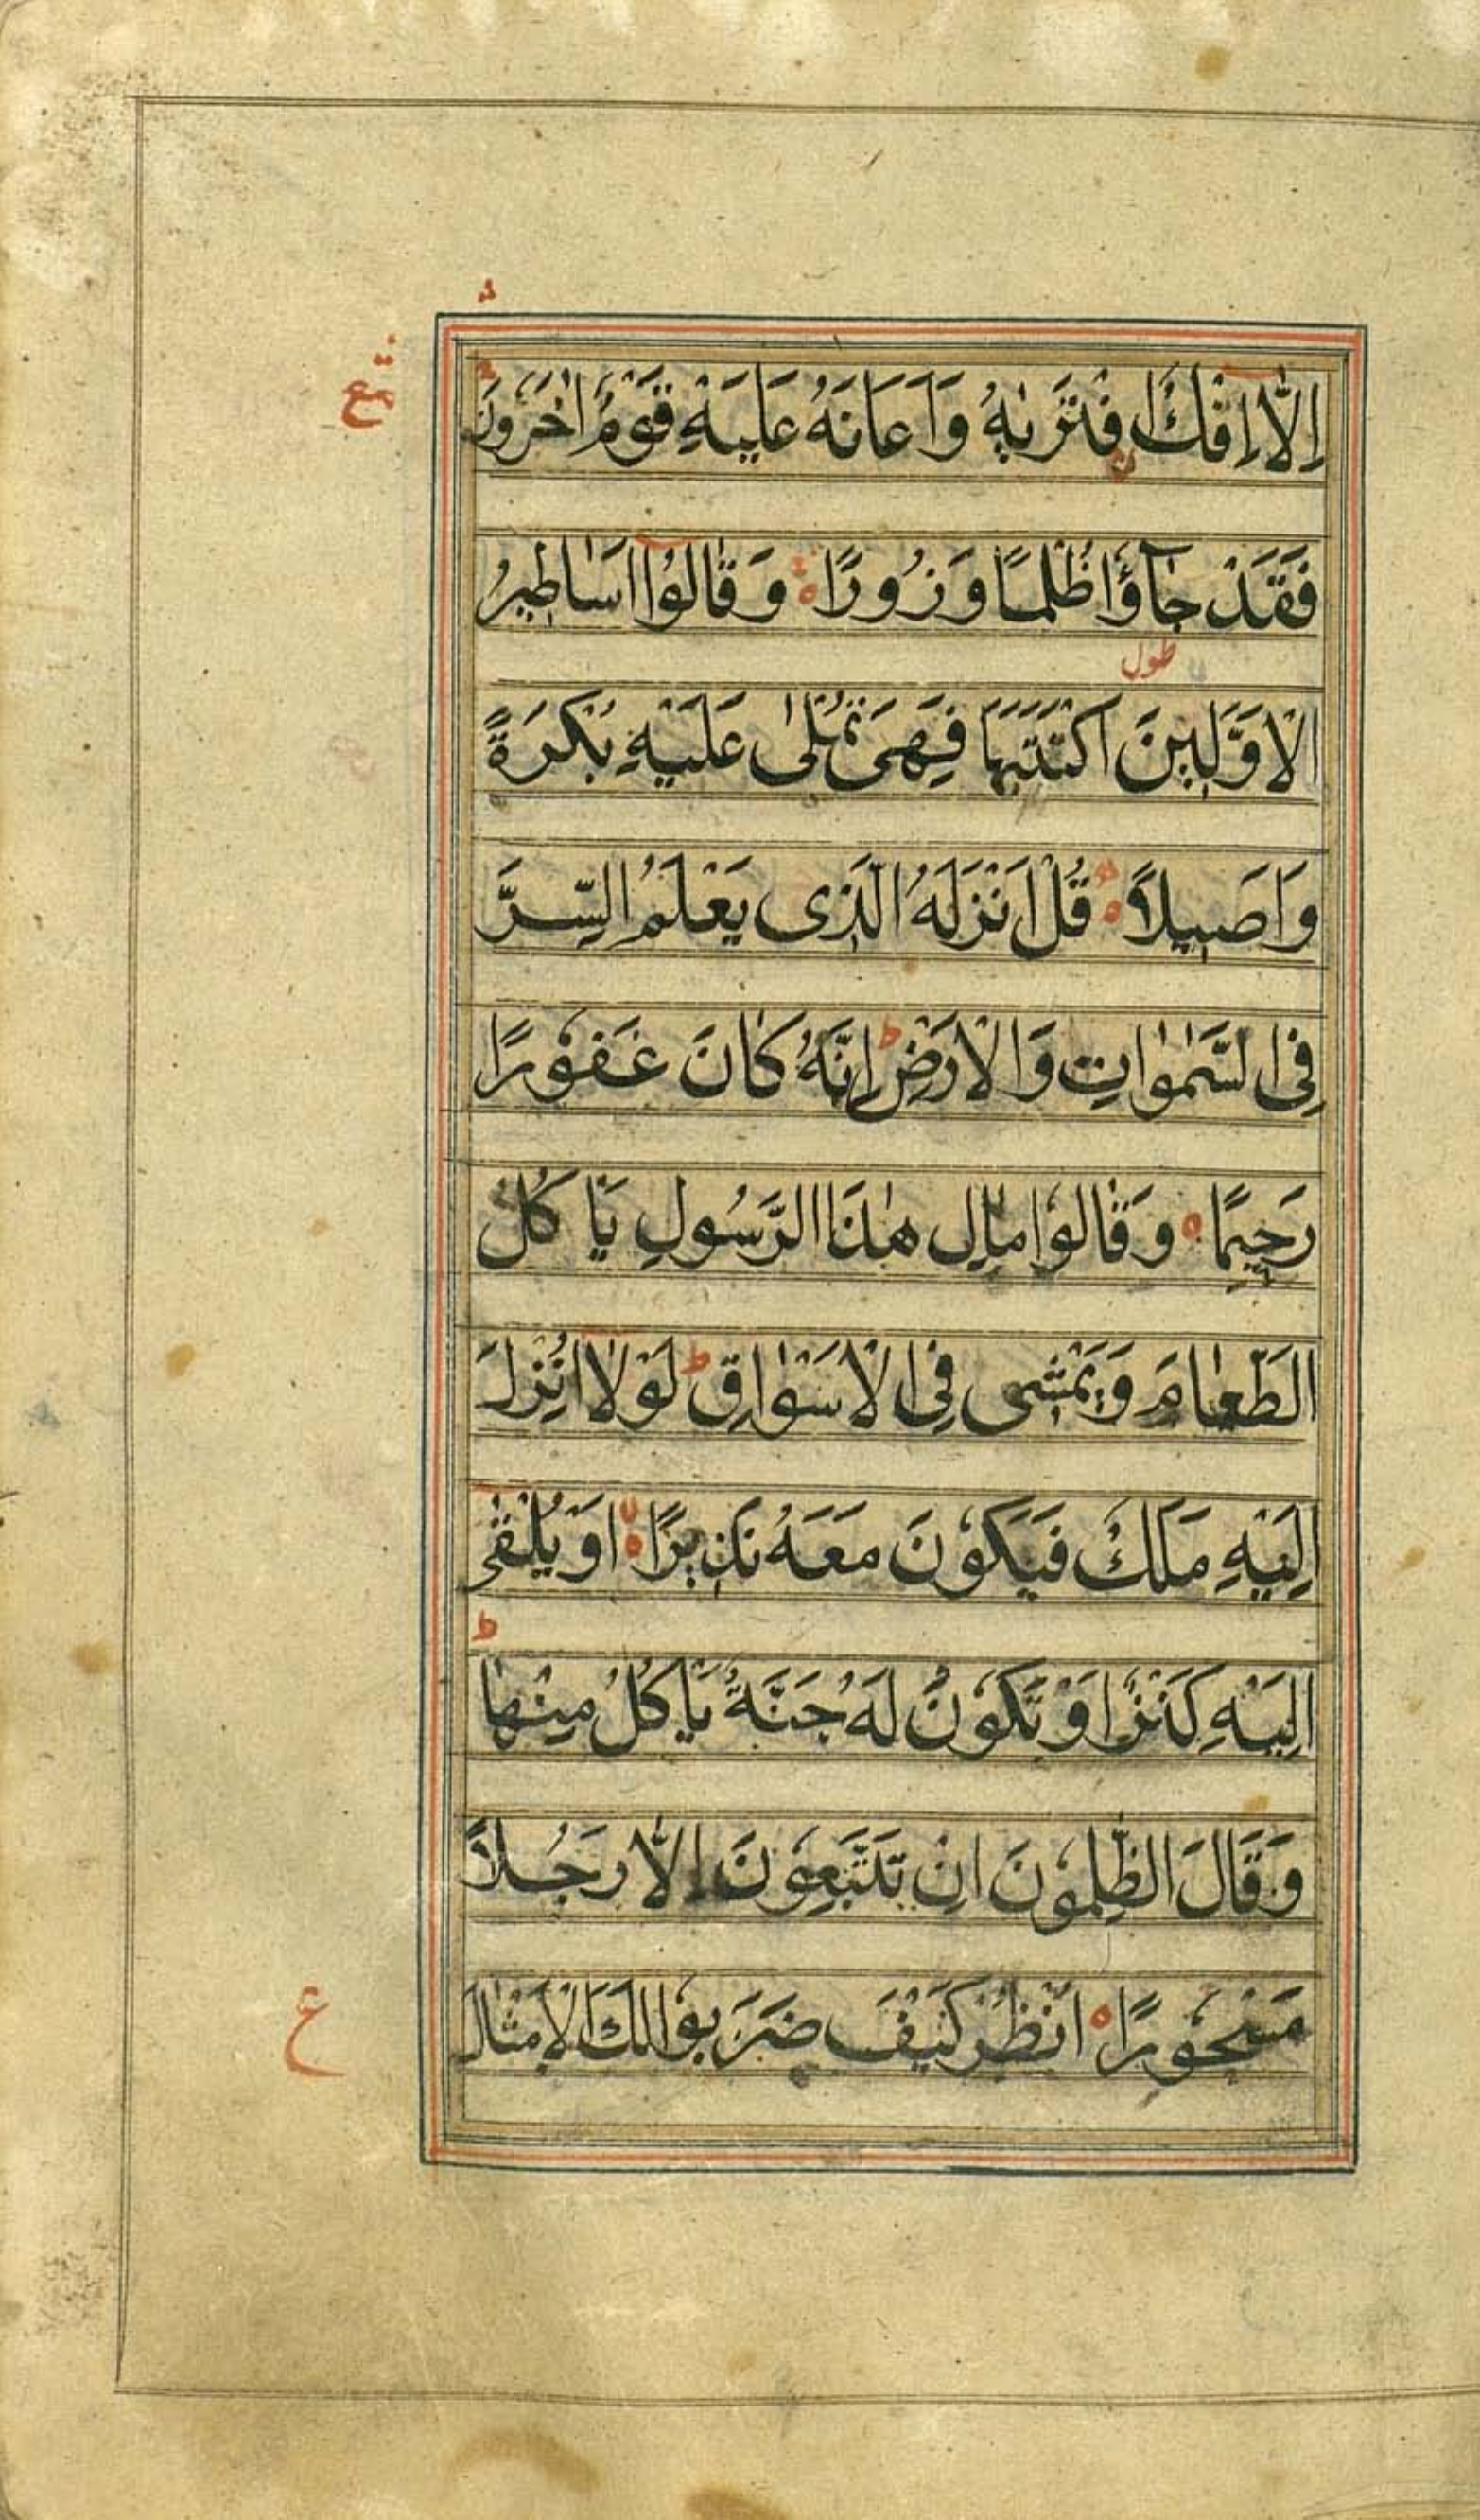 اِلَّا اِفْكٌ افْتَرٰىهُ وَاَعَانَهُ عَلَيْهِ قَوْمٌ اٰخَرُونَ
فَقَدْ جَآؤُا ظُلْمًا وَزُورًا ۝ وَقَالُوْا اَسَاطِيرُ
طول
الْاَوَّلِينَ اكْتَتَبَهَا فَهِىَ تُمْلٰى عَلَيْهِ بُكْرَةً
وَاَصِيلًا ۝ قُلْ اَنْزَلَهُ الَّذِى يَعْلَمُ السِّرَّ
فِى السَّمٰوَاتِ وَالْاَرْضِ ط اِنَّهُ كَانَ غَفُورًا
رَحِيمًا ۝ وَقَالُوا مَالِ هٰذَا الرَّسُولِ يَاْكُلُ
الطَّعَامَ وَيَمْشِى فِى الْاَسْوَاقِ ط لَوْلَا اُنْزِلَ
اِلَيْهِ مَلَكٌ فَيَكُوْنَ مَعَهُ نَذِيرًا ۝ اَوْ يُلْقٰى
ط
اِلَيْهِ كَنْزٌ اَوْ تَكُوْنُ لَهُ جَنَّةٌ يَاْكُلُ مِنْهَا
وَقَالَ الظّٰلِمُوْنَ اِنْ تَتَّبِعُوْنَ اِلَّا رَجُلًا
ع
مَسْحُوْرًا ۝ اُنْظُرْ كَيْفَ ضَرَبُوْا لَكَ الْاَمْثَالَ